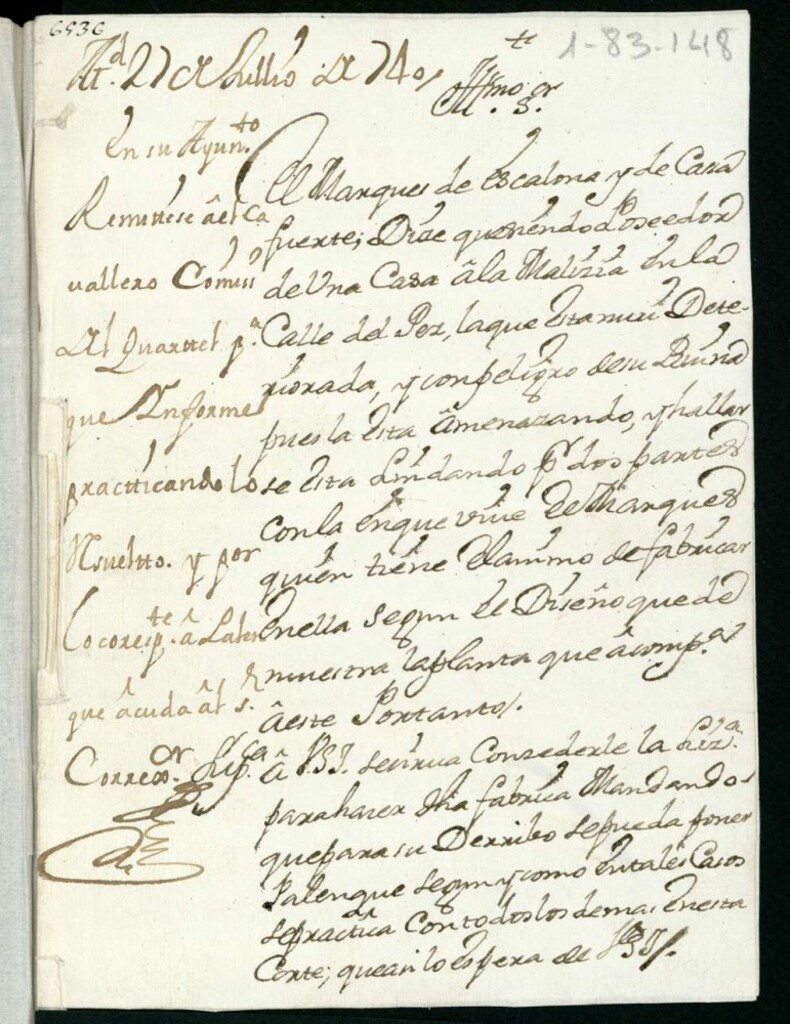 6536
1-83-148
M.d 27 de Jullio de 740,
Illmo. S.or
En su Ayun.to
Remittese âel Ca
vallero Comiss
del Quarttel p.a
que Informe
practticando lo
Resueltto. y por
Lo corresp.te â
que âcuda âl S.r
Correx.or
El Marques de escalona y de Casa
fuerte; Dize que siendo Poseedor
de Una Casa âla Malizia en la
Calle del Pez, laque esta mui Dete-
riorada, y con peligro de su Ruina
pues la esta âmenazando, y hallar
se esta Lindando p.r dos partes
con la en que vive el Marques
quien tiene el animo de fabricar
en ella segun el Diseño que de
muestra la planta que âcomp.a
âeste Portanto/.
Sup.ca â V.S.I. se sirva Conzederle la Liz.a
para hazer dha fabrica Mandando
que para su Derribo se pueda poner
Palenque segun y como en tales Casos
se practica Con todos los demas en esta
Corte; que asi lo espera de V.S.I/.